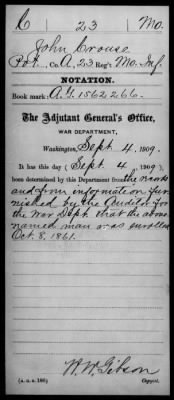 C | 23 | Mo.
John Crouse
Pvt., Co. A, 23 Reg't Mo. Inf.
NOTATION.
Book mark: A.G. 1562266.
The Adjutant General's Office,
WAR DEPARTMENT,
Washington, Sept. 4, 1909.
It has this day (Sept. 4, 1909)
been determined by this Department from the records
and from information fur-
nished by the Auditor for
the War Dept. that the above
named man was enrolled
Oct. 8, 1861.
W. W. Gibson
Copyist.